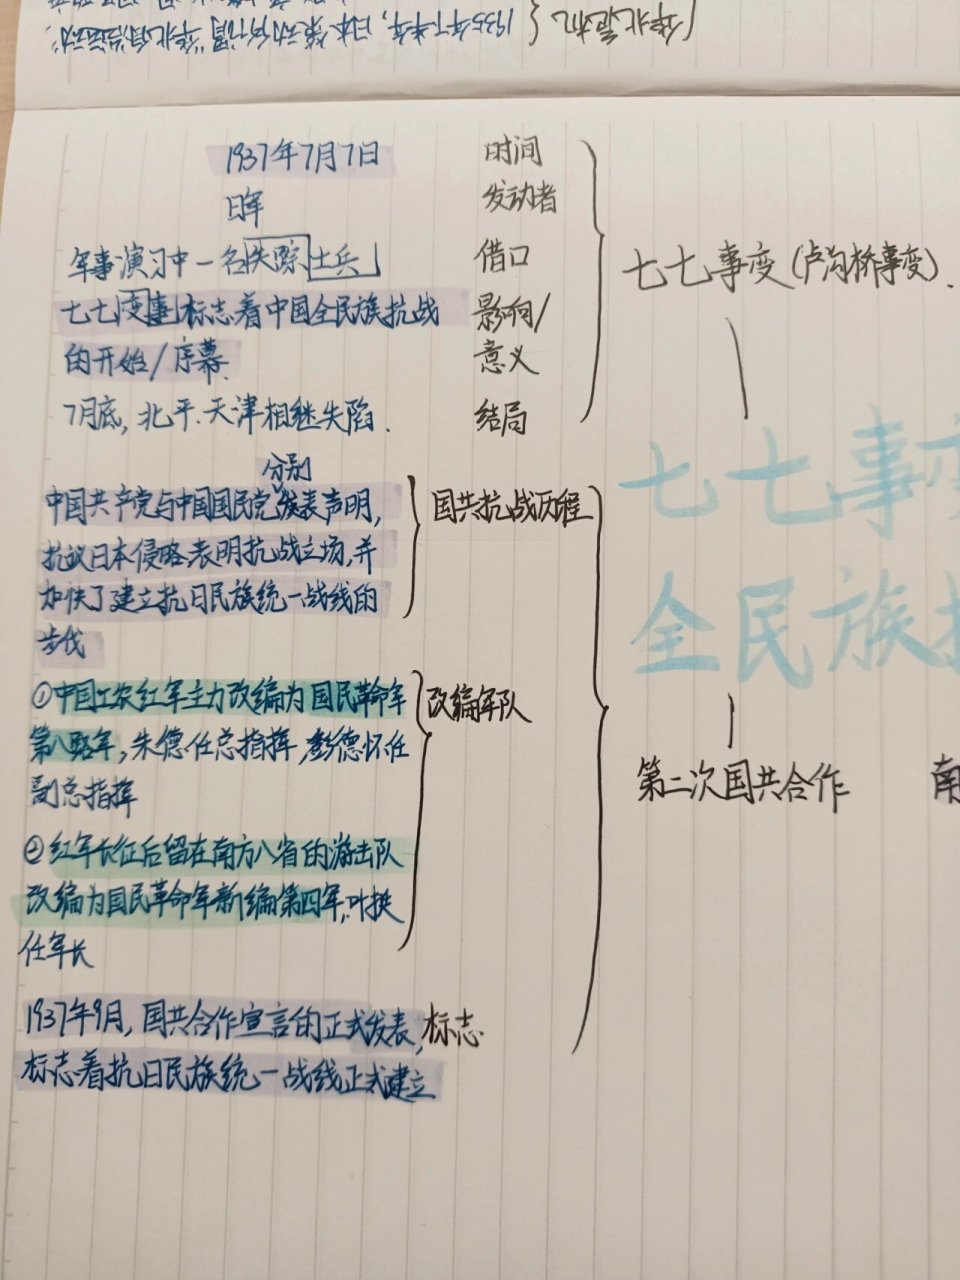 1935年下半年,日本策动所谓"华北自治运动".
华北危机
1937年7月7日
时间
日军
发动者
军事演习中一名失踪士兵
借口
七七事变(卢沟桥事变).
七七变事标志着中国全民族抗战
影响/
的开始/序幕.
意义
7月底,北平.天津相继失陷.
结局
七七事变
全民族
分别
中国共产党与中国国民党发表声明,
国共抗战历程
抗议日本侵略,表明抗战立场,并
加快了建立抗日民族统一战线的
步伐
①中国工农红军主力改编为国民革命军
改编军队
第八路军,朱德任总指挥,彭德怀任
副总指挥
第二次国共合作
南
②红军长征后留在南方八省的游击队
改编为国民革命军新编第四军,叶挺
任军长
1937年9月,国共合作宣言的正式发表,
标志
标志着抗日民族统一战线正式建立